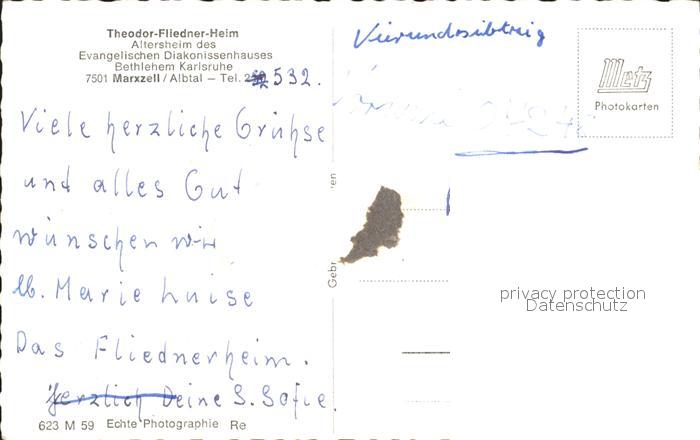 Theodor-Fliedner-Heim
Altersheim des
Evangelischen Diakonissenhauses
Bethlehem Karlsruhe
7501 Marxzell / Albtal – Tel. 532.
Viele herzliche Grühse
und alles Gut
wünschen wir
lb. Marie Luise
Das Fliednerheim.
Herzlich Deine S. Sofie.
623 M 59 Echte Photographie Re
Gebr
en
Metz
Photokarten
privacy protection
Datenschutz